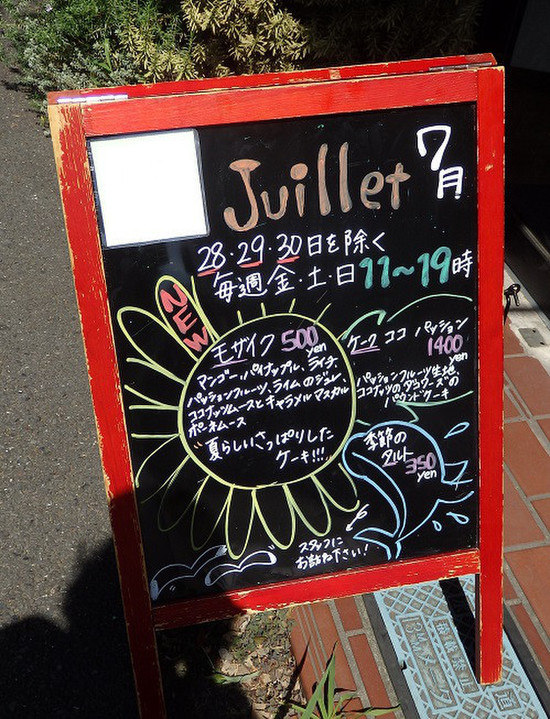 Juillet 7月
28・29・30日を除く
毎週金・土・日 11〜19時
NEW
モザイク 500 yen
マンゴー、パイナップル、ライチ、
パッションフルーツ、ライムのジュレ、
ココナッツムースとキャラメル マスカル
ポーネムース
"夏らしいさっぱりした
ケーキ!!!
ケーク ココ パッション
1400 yen
パッションフルーツ生地、
ココナッツのダコワーズの
パウンドケーキ
季節の
タルト 350 yen
スタッフに
お訪ね下さい!